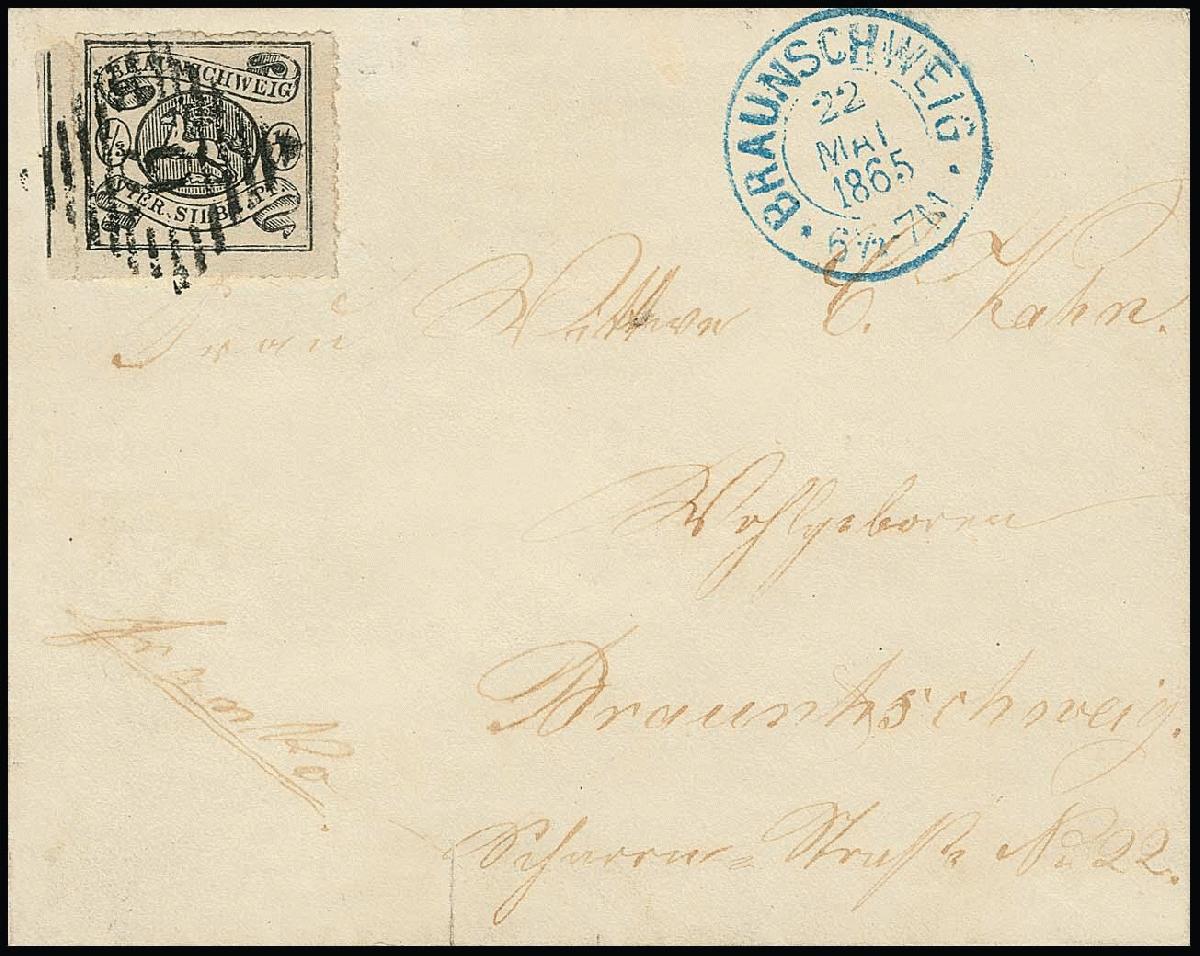 BRAUNSCHWEIG
1/3
SILB
BRAUNSCHWEIG
22
MAI
1865
6½-7N
Frau Wittwe C. Kahn.
Wohlgeboren
Braunschweig.
Franko.
Scharrn-Straße No 22.